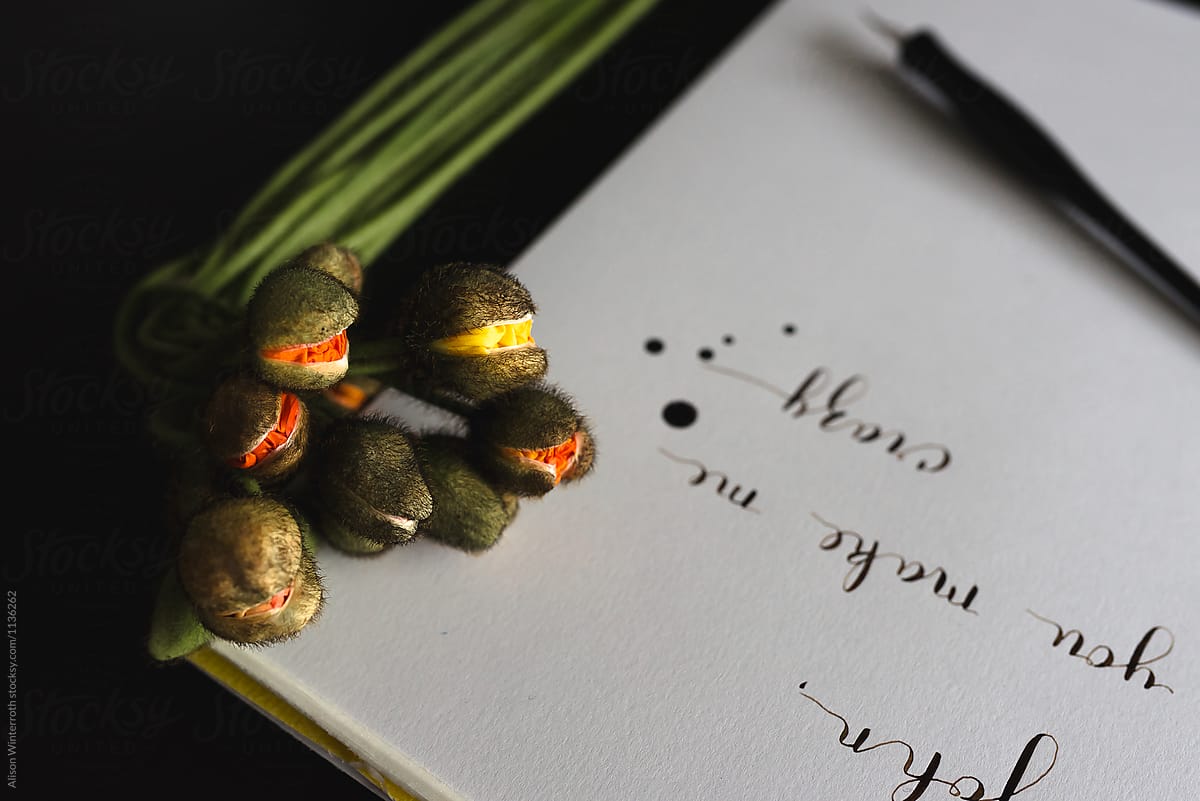 John
you make me
crazy
Alison Winterroth stocksy.com/1136262
Stocksy
UNITED